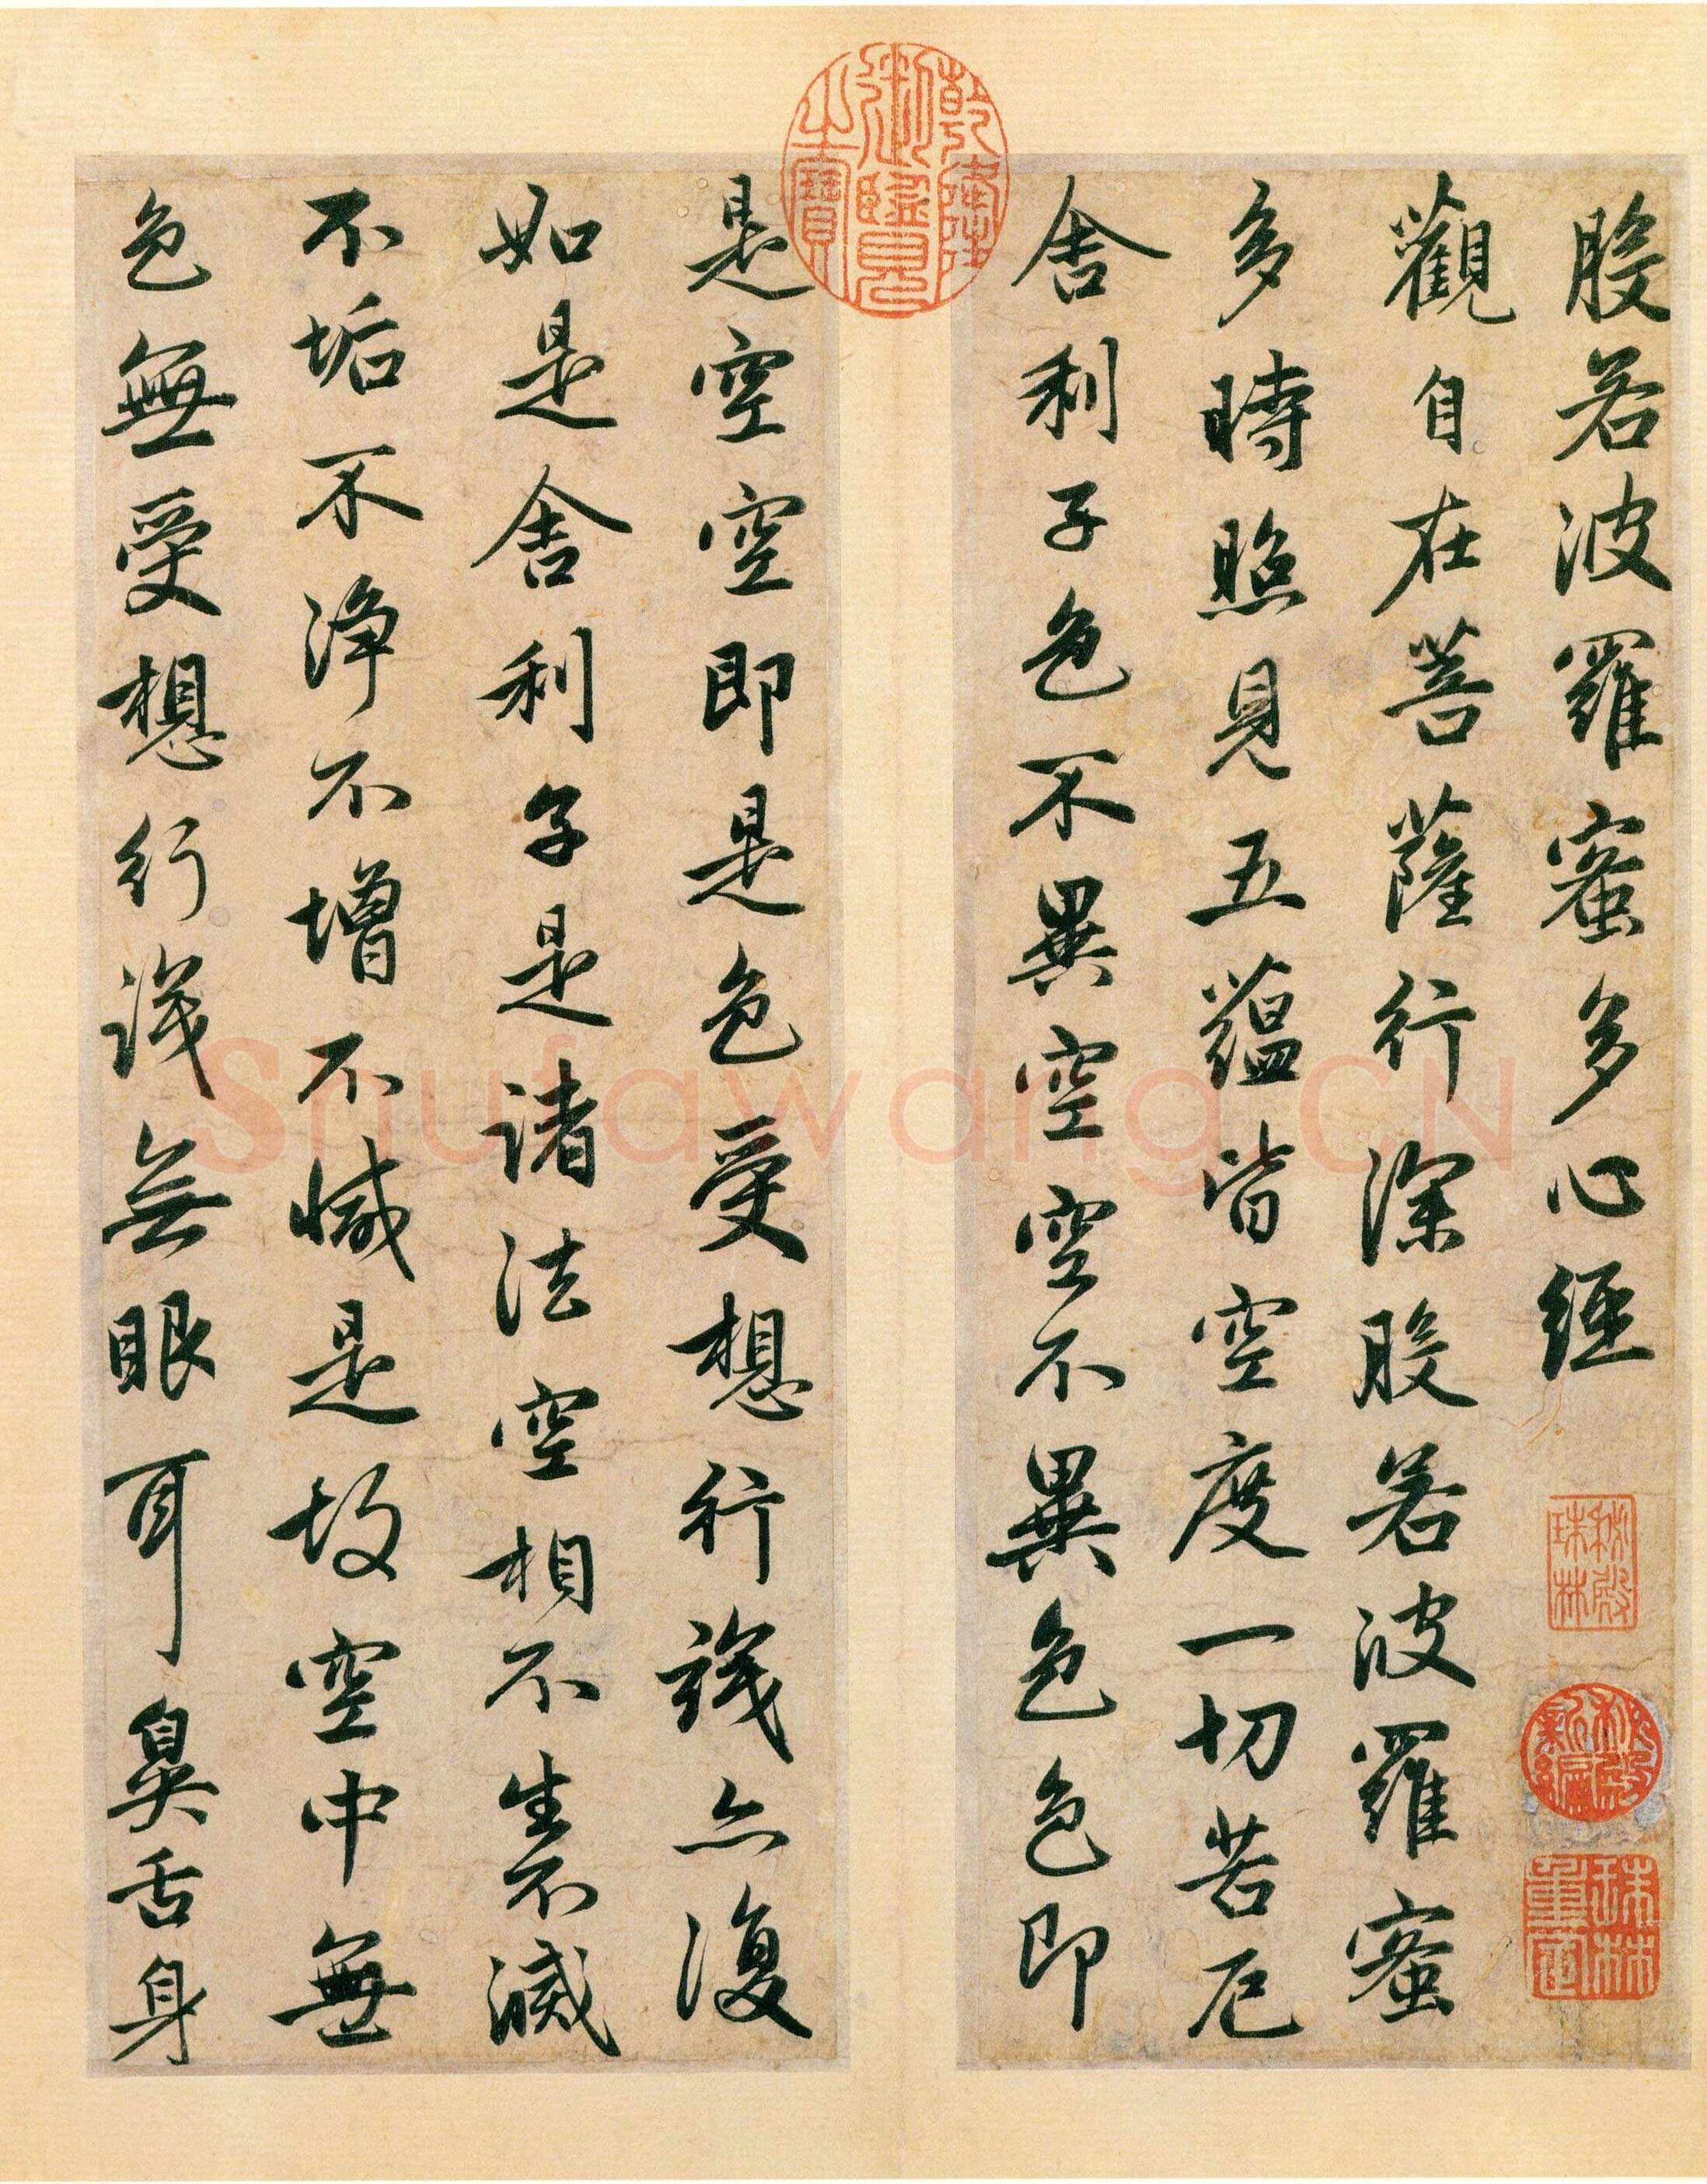 般若波羅蜜多心經
觀自在菩薩行深般若波羅蜜
多時照見五蘊皆空度一切苦厄
舍利子色不異空空不異色色即
是空空即是色受想行識亦復
如是舍利子是諸法空相不生不滅
不垢不淨不增不減是故空中無
色無受想行識無眼耳鼻舌身
乾隆御覽之寶
秘殿珠林
秘殿新編
珠林重定
Shufawang.CN